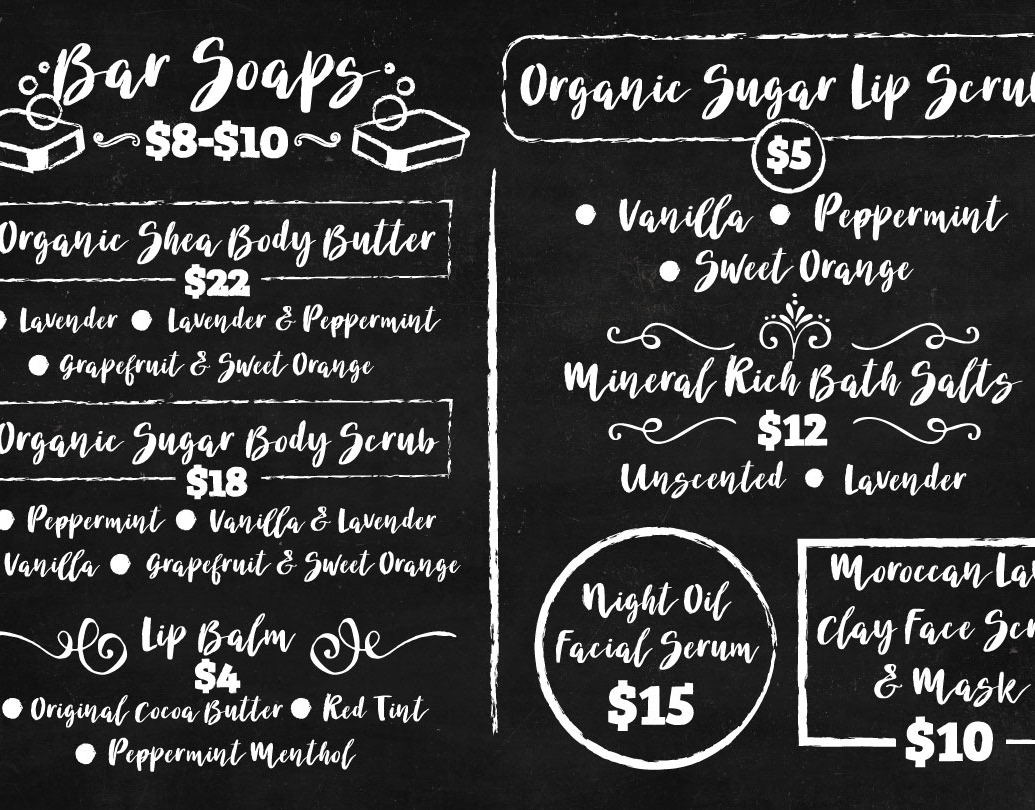 Bar Soaps
$8-$10
Organic Shea Body Butter
$22
Lavender ● Lavender & Peppermint
● Grapefruit & Sweet Orange
Organic Sugar Body Scrub
$18
● Peppermint ● Vanilla & Lavender
Vanilla ● Grapefruit & Sweet Orange
Lip Balm
$4
● Original Cocoa Butter ● Red Tint
● Peppermint Menthol
Organic Sugar Lip
$5
● Vanilla ● Peppermint
● Sweet Orange
Mineral Rich Bath Salts
$12
Unscented ● Lavender
Night Oil
Facial Serum
$15
Moroccan
Clay Face
& Mask
$10